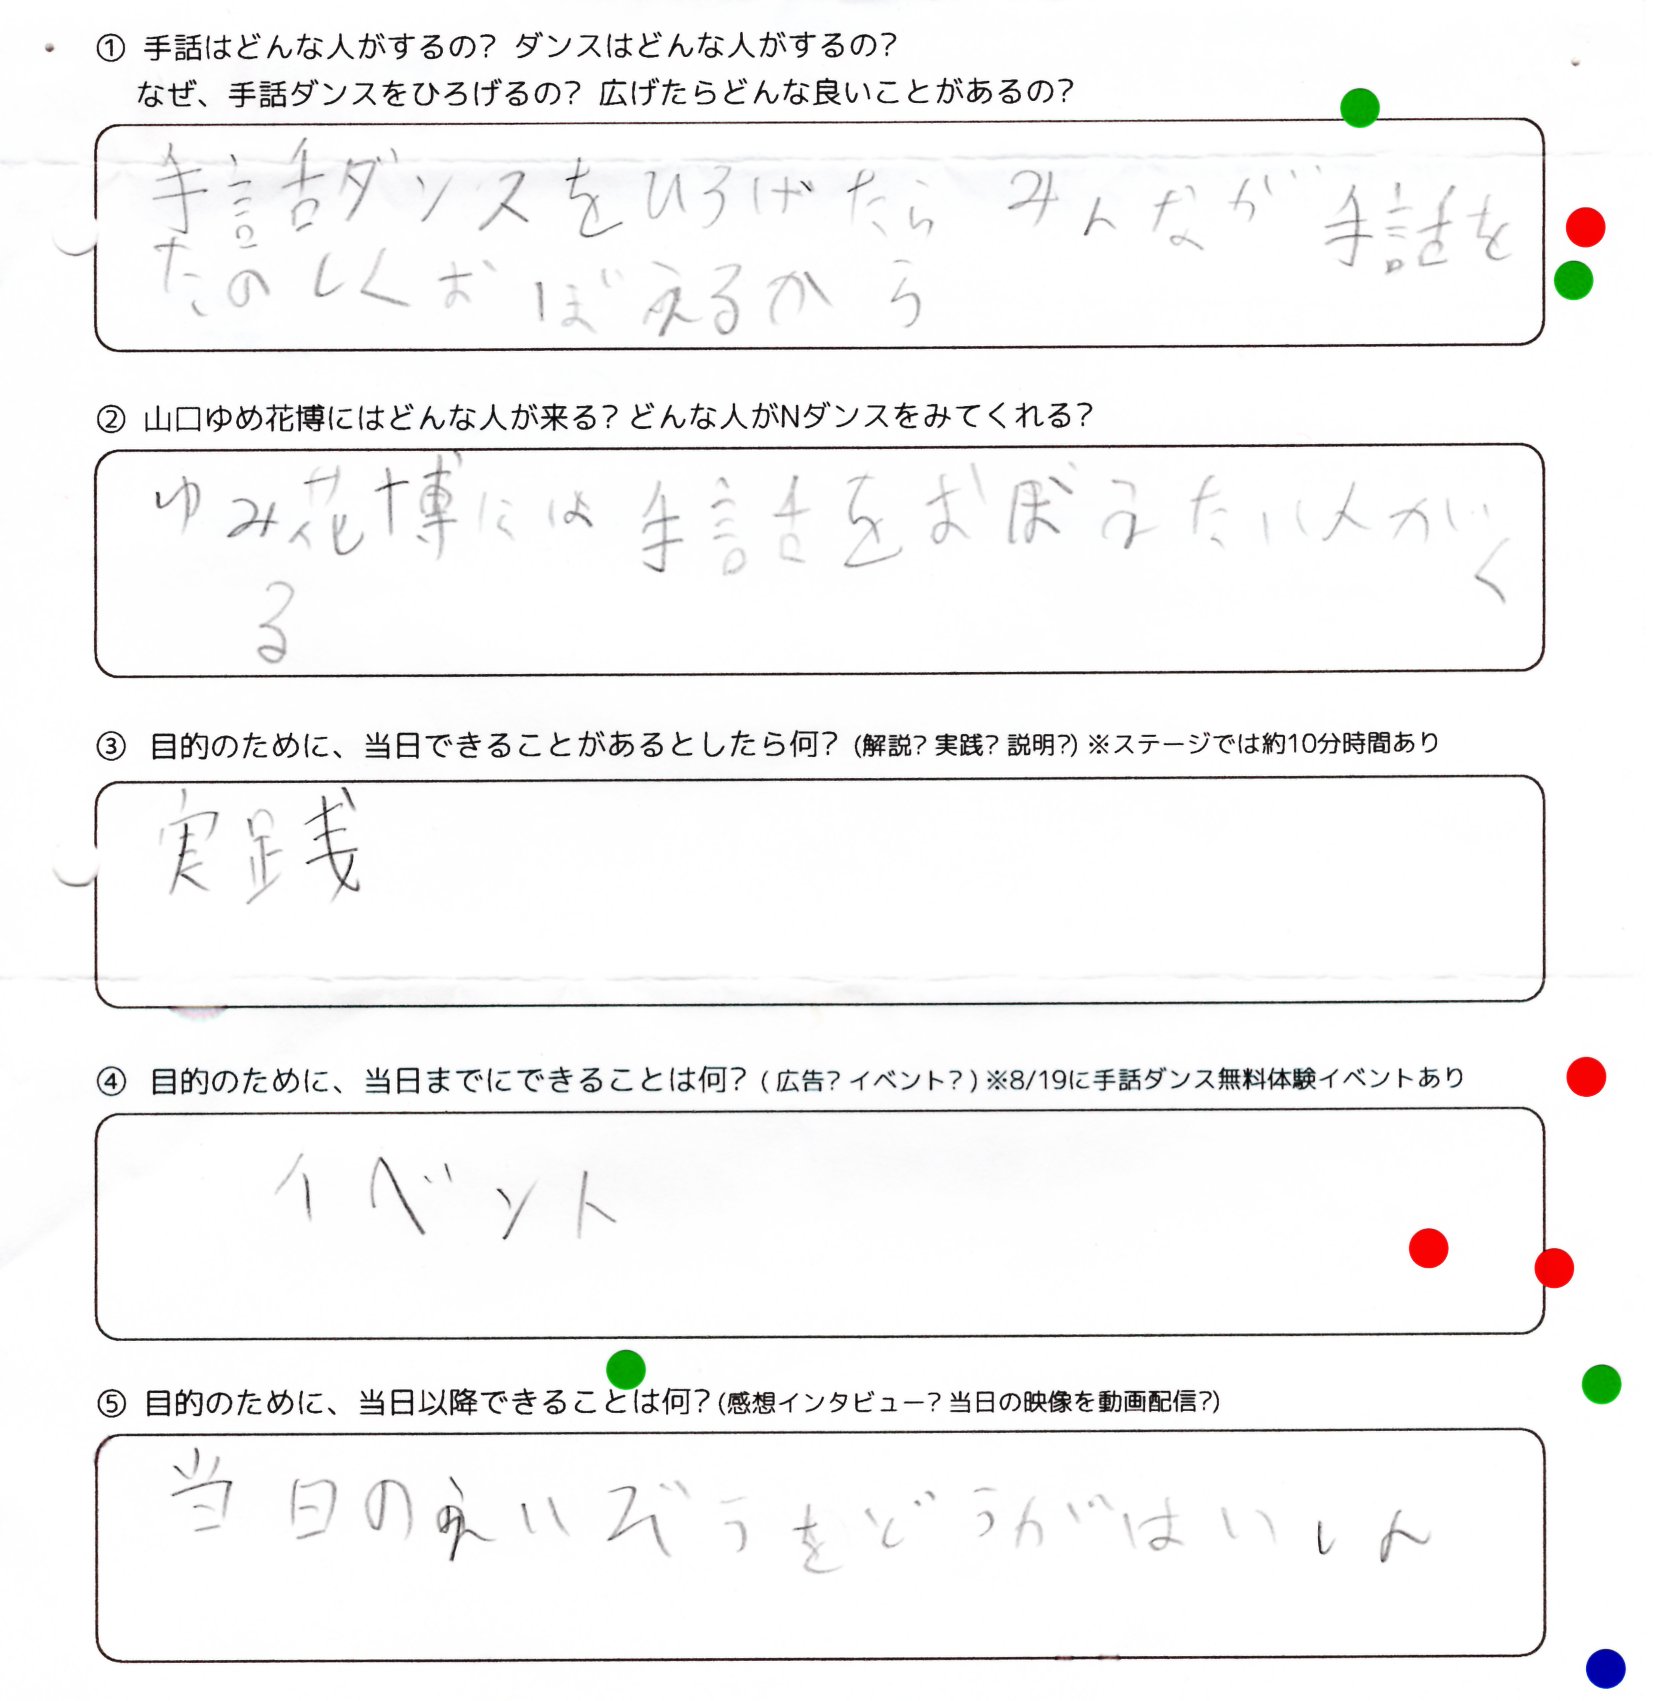 ① 手話はどんな人がするの? ダンスはどんな人がするの?
なぜ、手話ダンスをひろげるの? 広げたらどんな良いことがあるの?
手話ダンスをひろげたら みんなが手話を
たのしくおぼえるから
② 山口ゆめ花博にはどんな人が来る? どんな人がNダンスをみてくれる?
ゆみ花博には手話をおぼえたい人がく
る
③ 目的のために、当日できることがあるとしたら何? (解説? 実践? 説明?) ※ステージでは約10分時間あり
実践
④ 目的のために、当日までにできることは何? ( 広告? イベント? ) ※8/19に手話ダンス無料体験イベントあり
イベント
⑤ 目的のために、当日以降できることは何? (感想インタビュー? 当日の映像を動画配信?)
当日のえいぞうをどうがはいしん